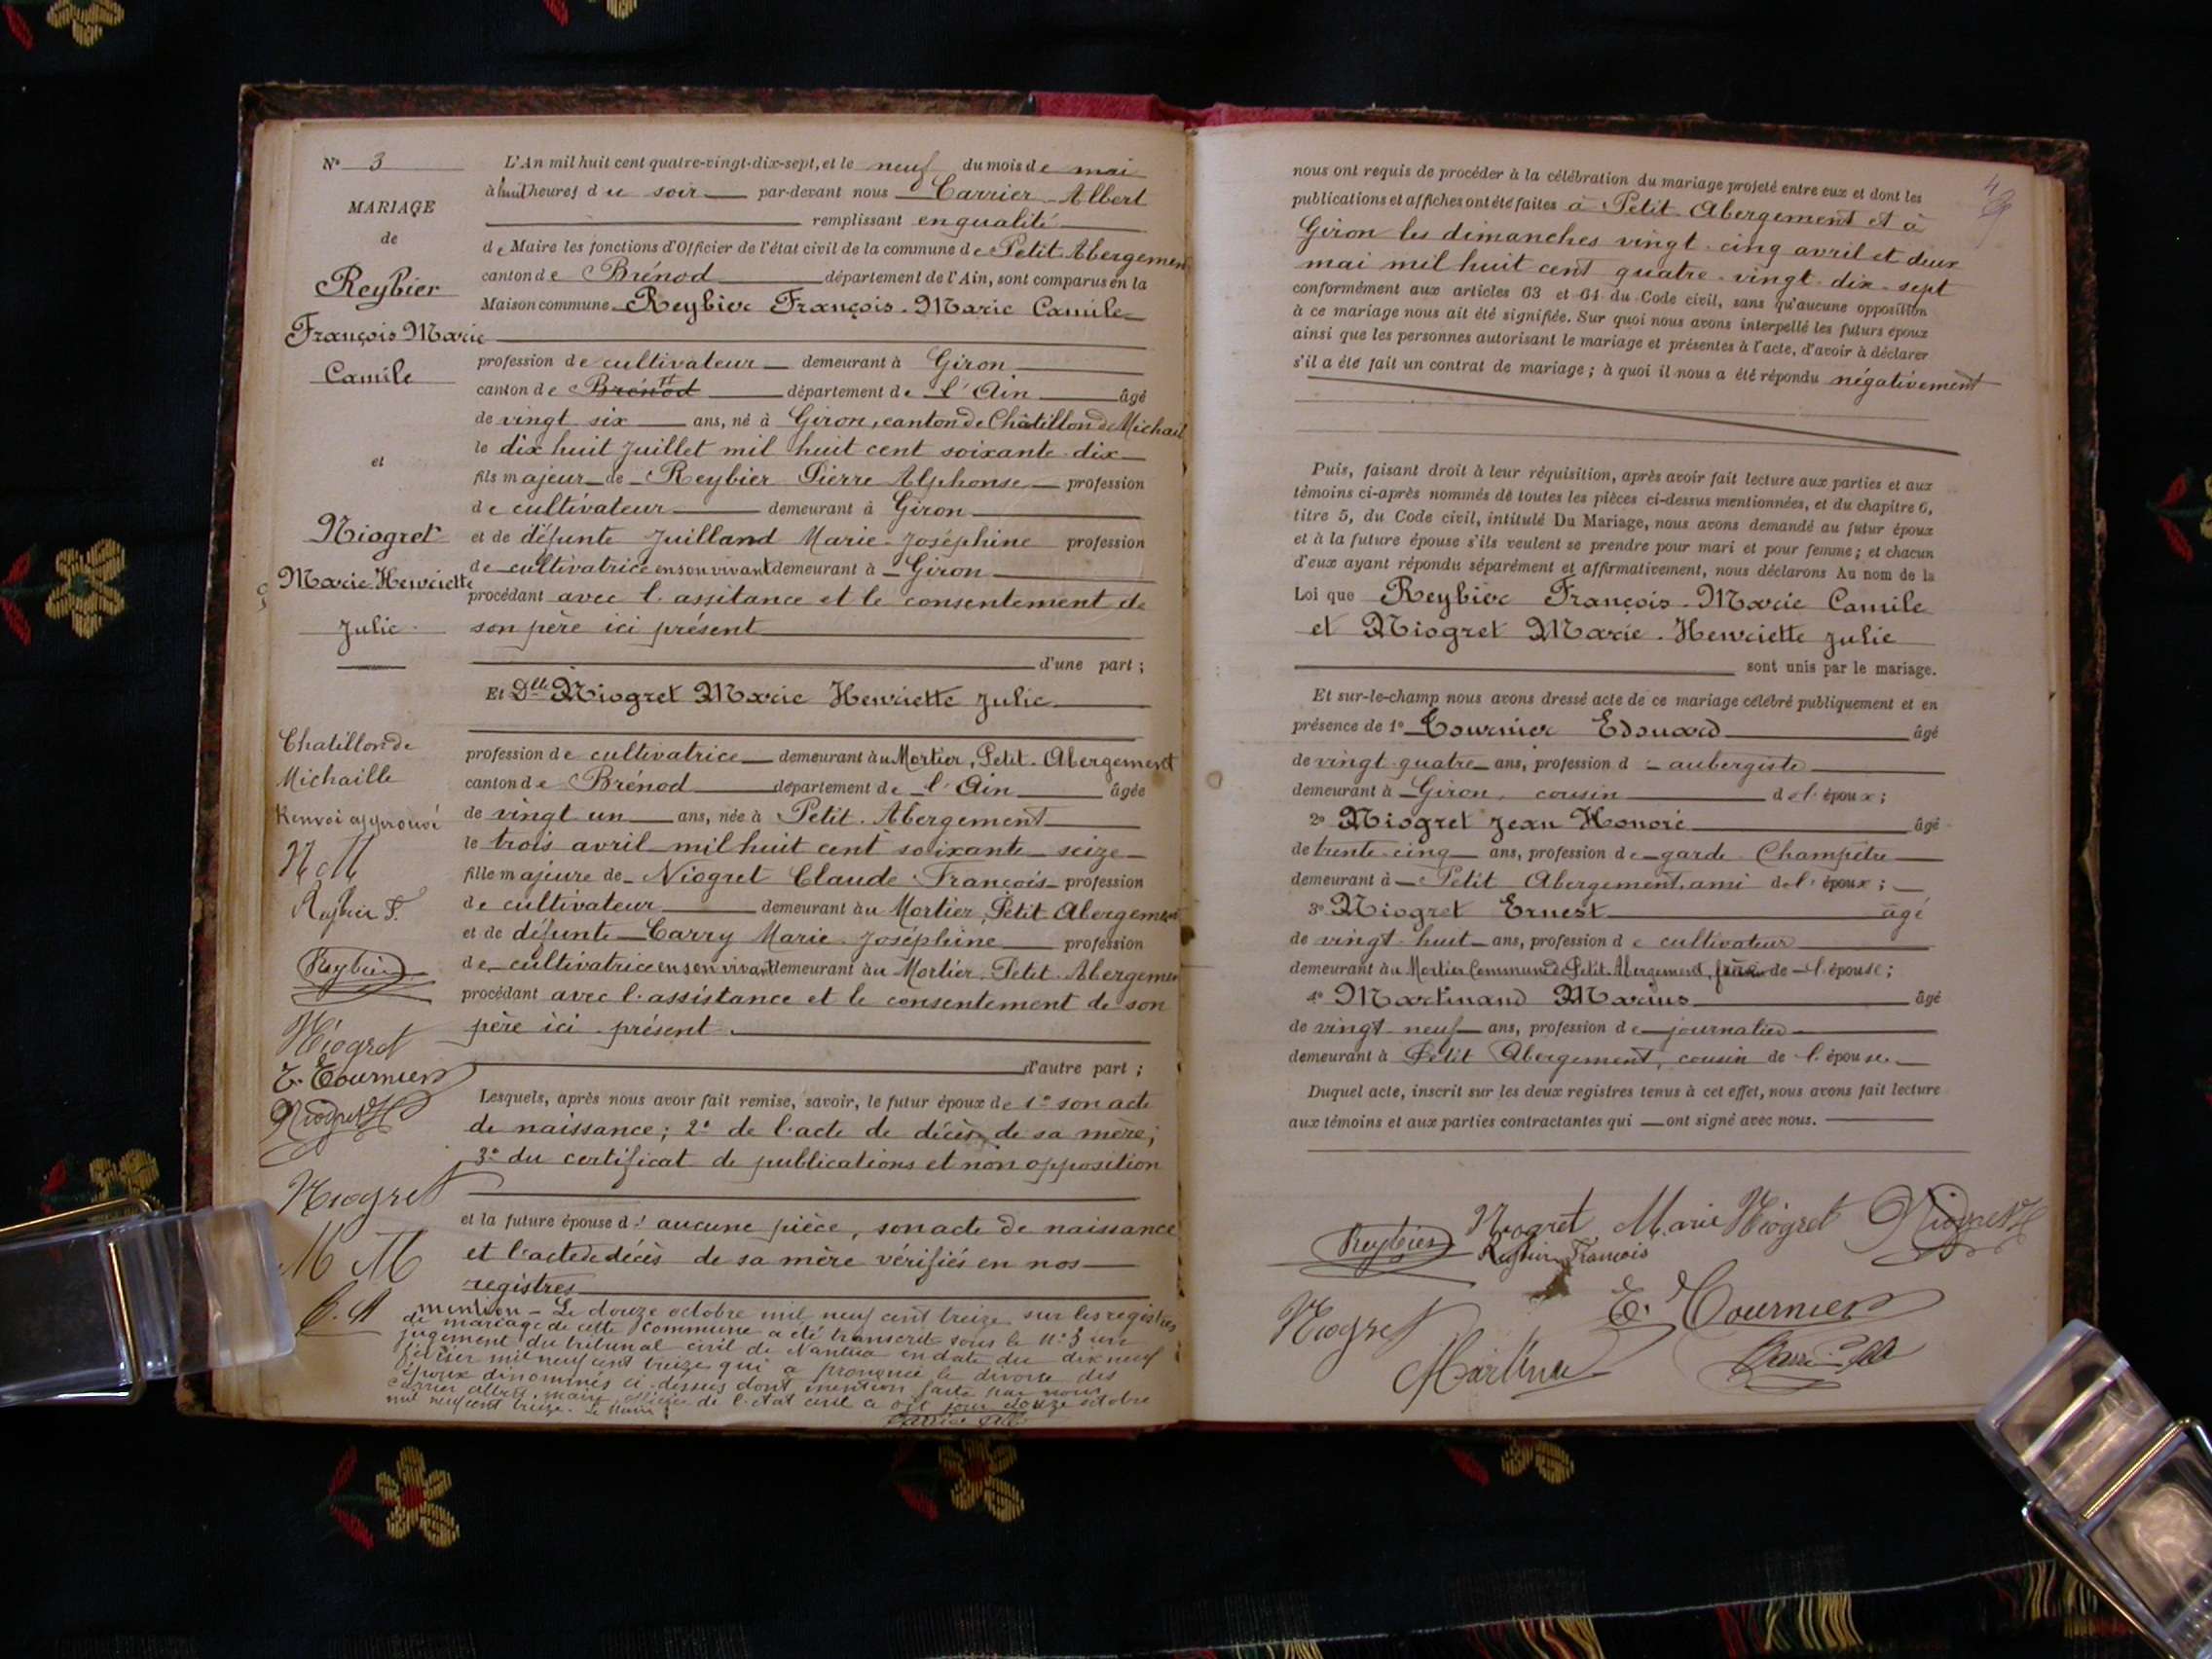 Nº 3
MARIAGE
de
Reybier
François Marie
Camile
et
Niogret
Marie Henriette
Julie
Chatillon de
Michaille
Renvoi approuvé
N M
Reybier F.
Reybier
Niogret
E. Tournier
Niogret H
Niogret
M M
C. A
L'An mil huit cent quatre-vingt-dix-sept, et le neuf du mois de mai
à huit heures du soir par-devant nous Carrier Albert
remplissant en qualité
de Maire les fonctions d'Officier de l'état civil de la commune de Petit Abergemen
canton de Brénod département de l'Ain, sont comparus en la
Maison commune Reybier François-Marie Camile
profession de cultivateur demeurant à Giron
canton de Brénod département de l'Ain âgé
de vingt six ans, né à Giron, canton de Châtillon de Michail
le dix huit Juillet mil huit cent soixante-dix
fils majeur de Reybier Pierre Alphonse profession
de cultivateur demeurant à Giron
et de défunte Juilland Marie-Joséphine profession
de cultivatrice en son vivant demeurant à Giron
procédant avec l'assitance et le consentement de
son père ici présent
d'une part;
Et Dlle Niogret Marie Henriette Julie
profession de cultivatrice demeurant au Mortier, Petit-Abergement
canton de Brénod département de l'Ain âgée
de vingt un ans, née à Petit-Abergement
le trois avril mil huit cent soixante-seize
fille majeure de Niogret Claude-François profession
de cultivateur demeurant au Mortier, Petit Abergement
et de défunte Carry Marie-Joséphine profession
de cultivatrice en son vivant demeurant au Mortier-Petit-Abergemen
procédant avec l'assistance et le consentement de son
père ici présent
d'autre part;
Lesquels, après nous avoir fait remise, savoir, le futur époux de 1º son acte
de naissance; 2º de l'acte de décès de sa mère;
3º du certificat de publications et non opposition
et la future épouse d' aucune pièce, son acte de naissance
et l'acte de décès de sa mère vérifiés en nos
registres
mention - Le douze octobre mil neuf cent treize sur les registres
de mariage de cette commune a été transcrit sous le nº 3 un
jugement du tribunal civil de Nantua en date du dix neuf
février mil neuf cent treize qui a prononcé le divorce des
époux dénommés ci-dessus dont mention faite par nous
Carrier Albert, maire, officier de l'état civil ce jour douze octobre
mil neuf cent treize. Le Maire
nous ont requis de procéder à la célébration du mariage projeté entre eux et dont les
publications et affiches ont été faites à Petit-Abergement et à
Giron les dimanches vingt-cinq avril et deux
mai mil huit cent quatre-vingt-dix-sept
conformément aux articles 63 et 64 du Code civil, sans qu'aucune opposition
à ce mariage nous ait été signifiée. Sur quoi nous avons interpellé les futurs époux
ainsi que les personnes autorisant le mariage et présentes à l'acte, d'avoir à déclarer
s'il a été fait un contrat de mariage; à quoi il nous a été répondu négativement
Puis, faisant droit à leur réquisition, après avoir fait lecture aux parties et aux
témoins ci-après nommés de toutes les pièces ci-dessus mentionnées, et du chapitre 6,
titre 5, du Code civil, intitulé Du Mariage, nous avons demandé au futur époux
et à la future épouse s'ils veulent se prendre pour mari et pour femme; et chacun
d'eux ayant répondu séparément et affirmativement, nous déclarons Au nom de la
Loi que Reybier François-Marie Camile
et Niogret Marie-Henriette Julie
sont unis par le mariage.
Et sur-le-champ nous avons dressé acte de ce mariage célébré publiquement et en
présence de 1º Tournier Edouard âgé
de vingt-quatre ans, profession d aubergiste
demeurant à Giron, cousin de l'époux;
2º Niogret Jean Honoré âgé
de trente-cinq ans, profession de garde-Champêtre
demeurant à Petit Abergement, ami de l'époux;
3º Niogret Ernest âgé
de vingt-huit ans, profession de cultivateur
demeurant au Mortier Commune de Petit-Abergement, frère de l'épouse;
4º Martinand Marius âgé
de vingt-neuf ans, profession de journalier
demeurant à Petit Abergement, cousin de l'épouse
Duquel acte, inscrit sur les deux registres tenus à cet effet, nous avons fait lecture
aux témoins et aux parties contractantes qui ont signé avec nous.
Niogret Marie Niogret Niogret H
Reybier Reybier François
Niogret E. Tournier